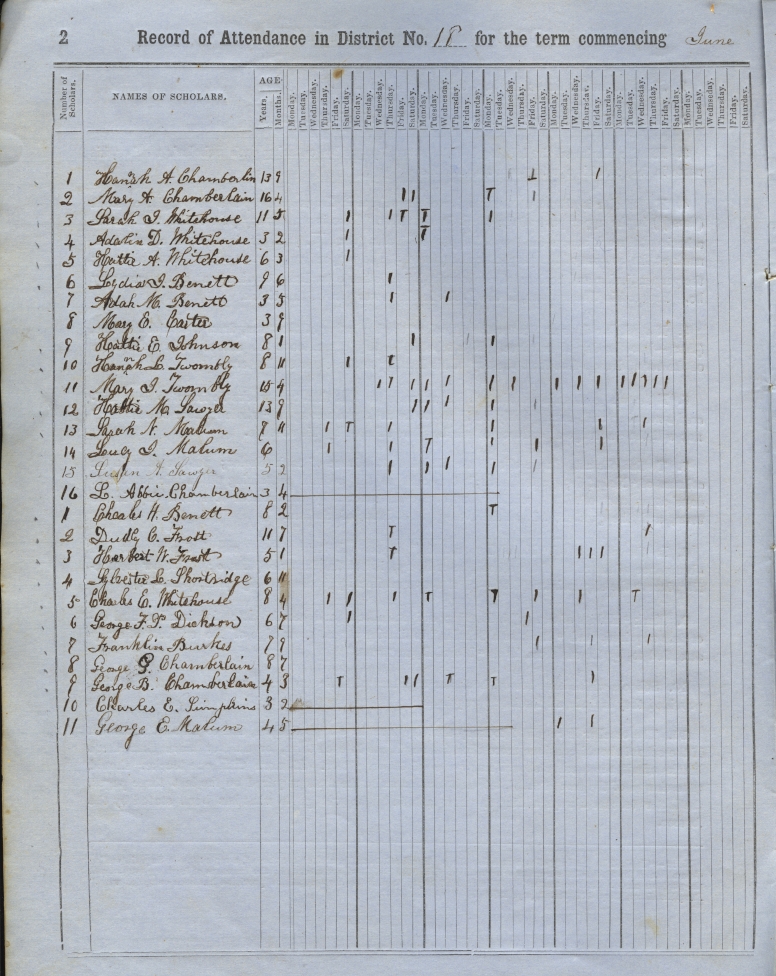 2 Record of Attendance in District No. 18 for the term commencing June
Number of Scholars. NAMES OF SCHOLARS. AGE Years. Months. Monday. Tuesday. Wednesday. Thursday. Friday. Saturday. Monday. Tuesday. Wednesday. Thursday. Friday. Saturday. Monday. Tuesday. Wednesday. Thursday. Friday. Saturday. Monday. Tuesday. Wednesday. Thursday. Friday. Saturday. Monday. Tuesday. Wednesday. Thursday. Friday. Saturday. Monday. Tuesday. Wednesday. Thursday. Friday. Saturday. Monday. Tuesday. Wednesday. Thursday. Friday. Saturday.
1 Hannah A. Chamberlin 13 9
2 Mary A. Chamberlain 16 4
3 Sarah J. Whitehouse 11 5
4 Adalin D. Whitehouse 3 2
5 Hattie A. Whitehouse 6 3
6 Lydia J. Benett 9 6
7 Adah M. Benett 3 5
8 Mary E. Carter 3 9
9 Hattie E. Johnson 8 1
10 Hannah L. Twombly 8 11
11 Mary J. Twombly 15 4
12 Hattie M. Sawyer 13 9
13 Sarah N. Malum 9 11
14 Lucy J. Malum 6
15 Susan A. Sawyer 5 2
16 L. Abbie Chamberlain 3 4
1 Charles H. Benett 8 2
2 Dudly C. Frost 11 7
3 Harbert W. Frost 5 1
4 Sylvester L. Shortridge 6 11
5 Charles E. Whitehouse 8 4
6 George F. P. Dickson 6 7
7 Franklin Burkes 7 9
8 George G. Chamberlain 8 7
9 George B. Chamberlain 4 3
10 Charles E. Simpkins 3 2
11 George E. Malum 4 5